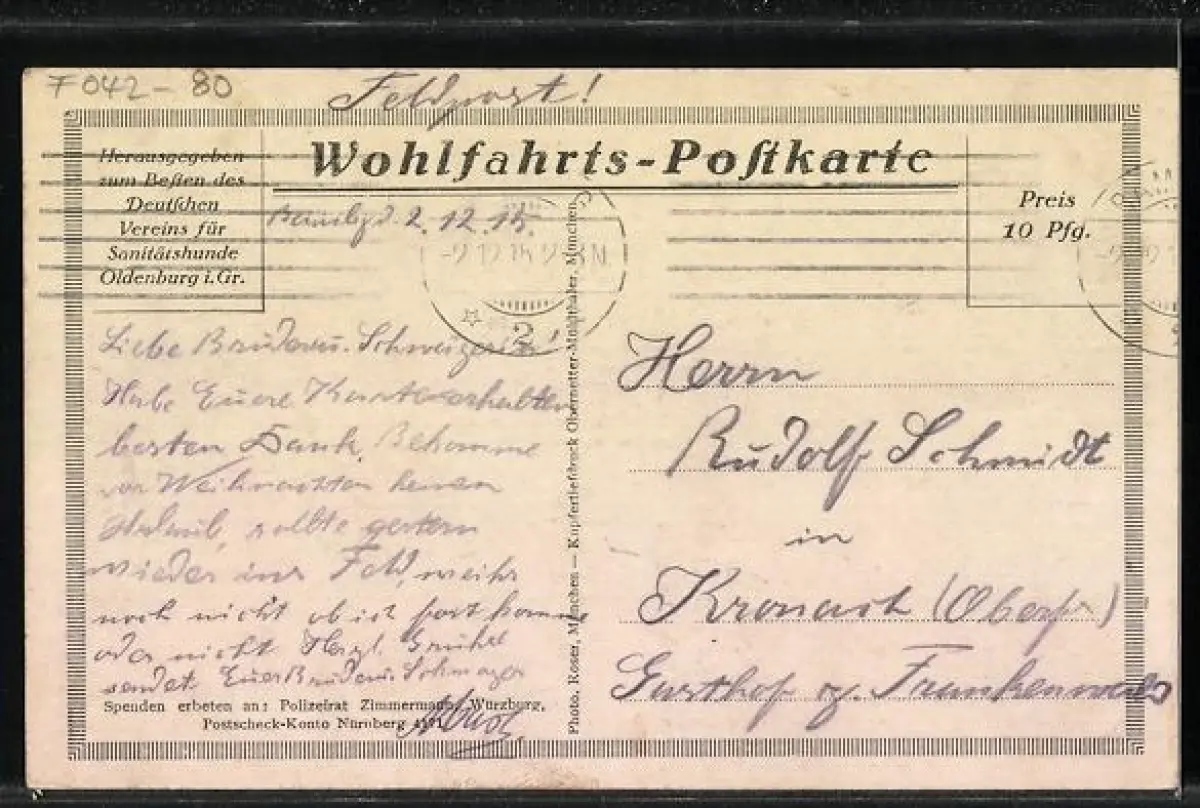 F 042 - 80
Feldpost!
Wohlfahrts-Poſtkarte
Herausgegeben
zum Beſten des
Deutſchen
Vereins für
Sanitätshunde
Oldenburg i. Gr.
Preis
10 Pfg.
2. 12. 15.
Liebe Bruder u. Schwägerin!
Habe Euere Karte erhalten
besten Dank. Bekomme
vor Weihnachten keinen
Urlaub, sollte gestern
wieder ins Feld, weihs
noch nicht ob ich fort komme
oder nicht Herzl. Grühse
sendet Euer Bruder u. Schwager
Spenden erbeten an: Polizeirat Zimmermann, Würzburg,
Postscheck-Konto Nürnberg 4171.
Photo. Roser, München — Kupfertiefdruck Obernetter-Mühlthaler, München.
Herrn
Rudolf Schmidt
in
Kronach (Oberfr)
Gasthof z. Frankenwald